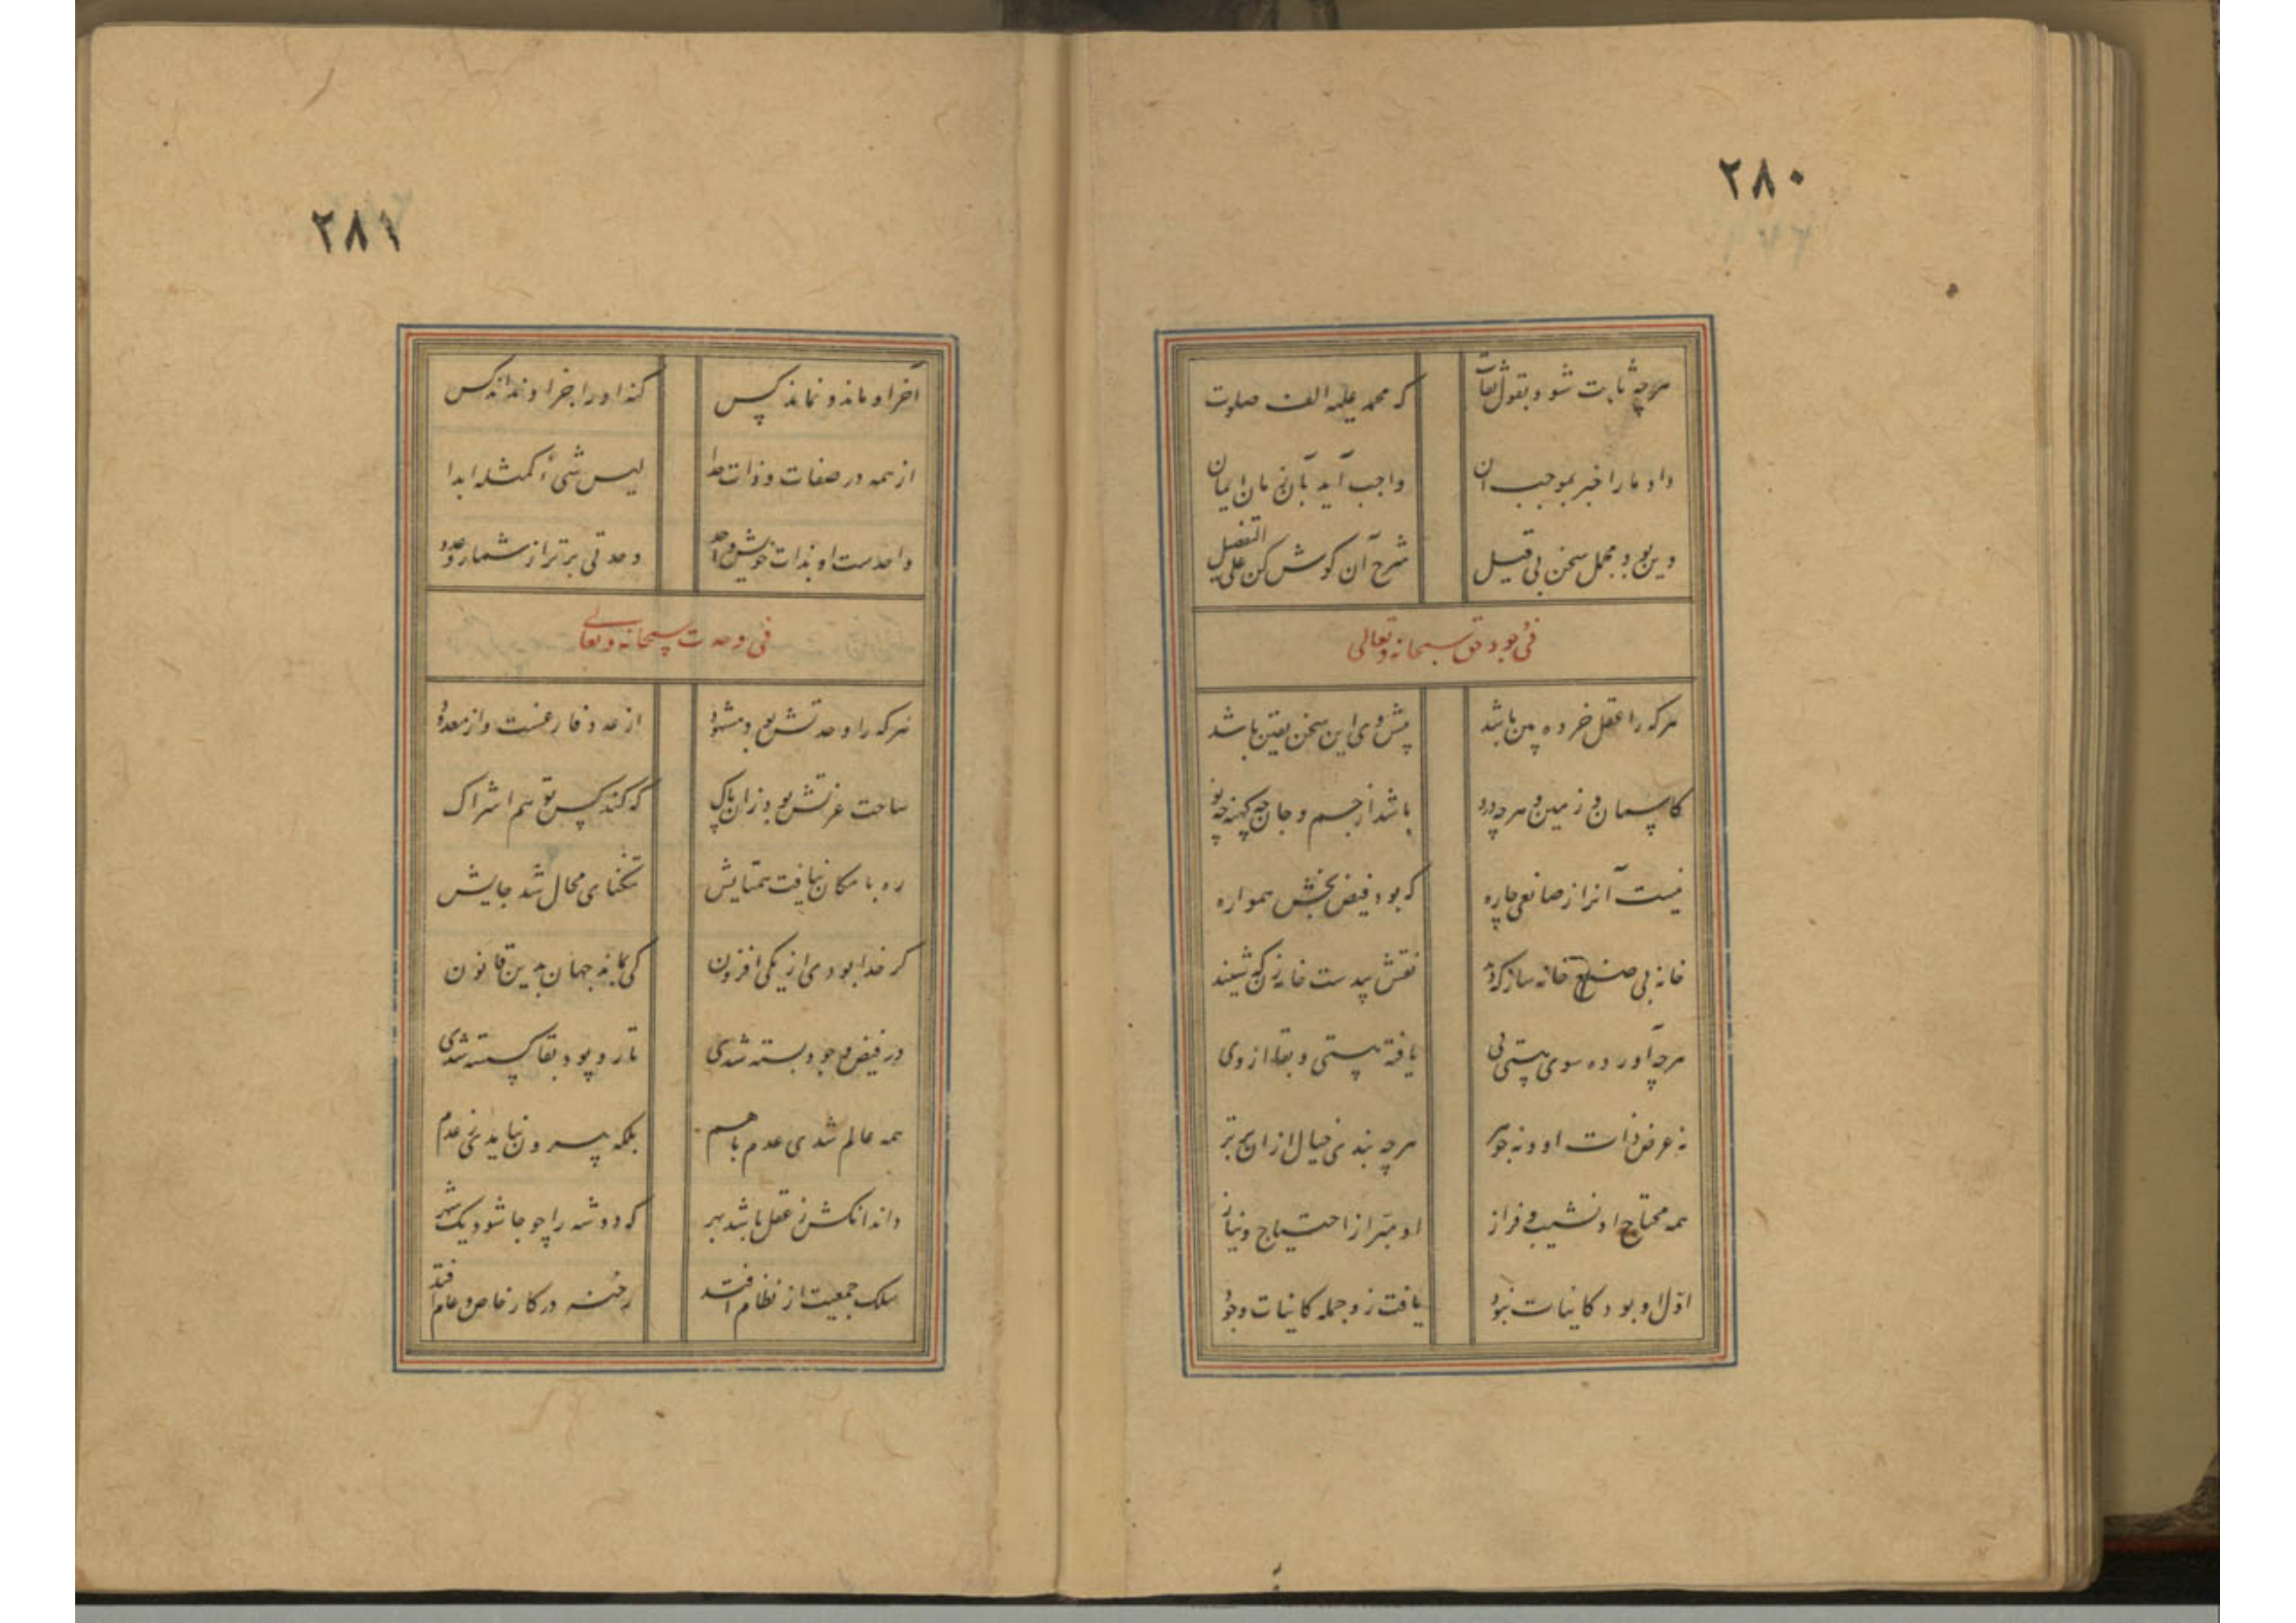 ٢٨٠
هرچه ثابت شود بقول ثقات
که محمد علیه الف صلوت
داد ما را خبر بموجب آن
واجب آید بآن زمان ایمان
وین بود مجمل سخن بی قیل
شرح آن کوش کن علی التفصیل
فی وجود حق سبحانه و تعالی
هرکه را عقل خرده بین باشد
پیش وی این سخن یقین باشد
کاسمان و زمین و هرچه درو
باشد از جسم و جان چه کهنه چه نو
نیست آنرا ز صانعی چاره
که بود فیض بخش همواره
خانه بی صنع خانه ساز که دید
نقش بی دست خامه زن که شنید
هرچه آورده سوی هستی پی
یافته هستی و بقا از وی
نه عرض ذات او و نه جوهر
هرچه بندی خیال از ان برتر
همه محتاج او نشیب و فراز
او مبرا ز احتیاج و نیاز
اول او بود و کاینات نبود
یافت زو جمله کاینات وجود
٢٨١
آخر او ماند و نماند کس
کنه او را جز او نداند کس
از همه در صفات و ذات جدا
لیس شیء کمثله ابدا
واحدست او بذات خویش واحد
وحدتی برتر از شمار و عدد
فی وحدت سبحانه و تعالی
هرکه را وحدتش بود مشهود
از عدد فارغست و از معدود
ساحت عزتش بود زان پاک
که کند کس توهم اشراک
ره بامکان نیافت همتایش
تنکنای محال شد جایش
کر خدا بودی از یکی افزون
کی بماندی جهان بدین قانون
در فیض وجود بسته شدی
تار و پود بقا کسسته شدی
همه عالم شدی عدم باهم
بلکه بیرون نیامدی ز عدم
داند آنکش ز عقل باشد بهر
که دو شه را چو جا شود یک شهر
سلک جمعیت از نظام افتد
رخنه در کار خاص و عام افتد